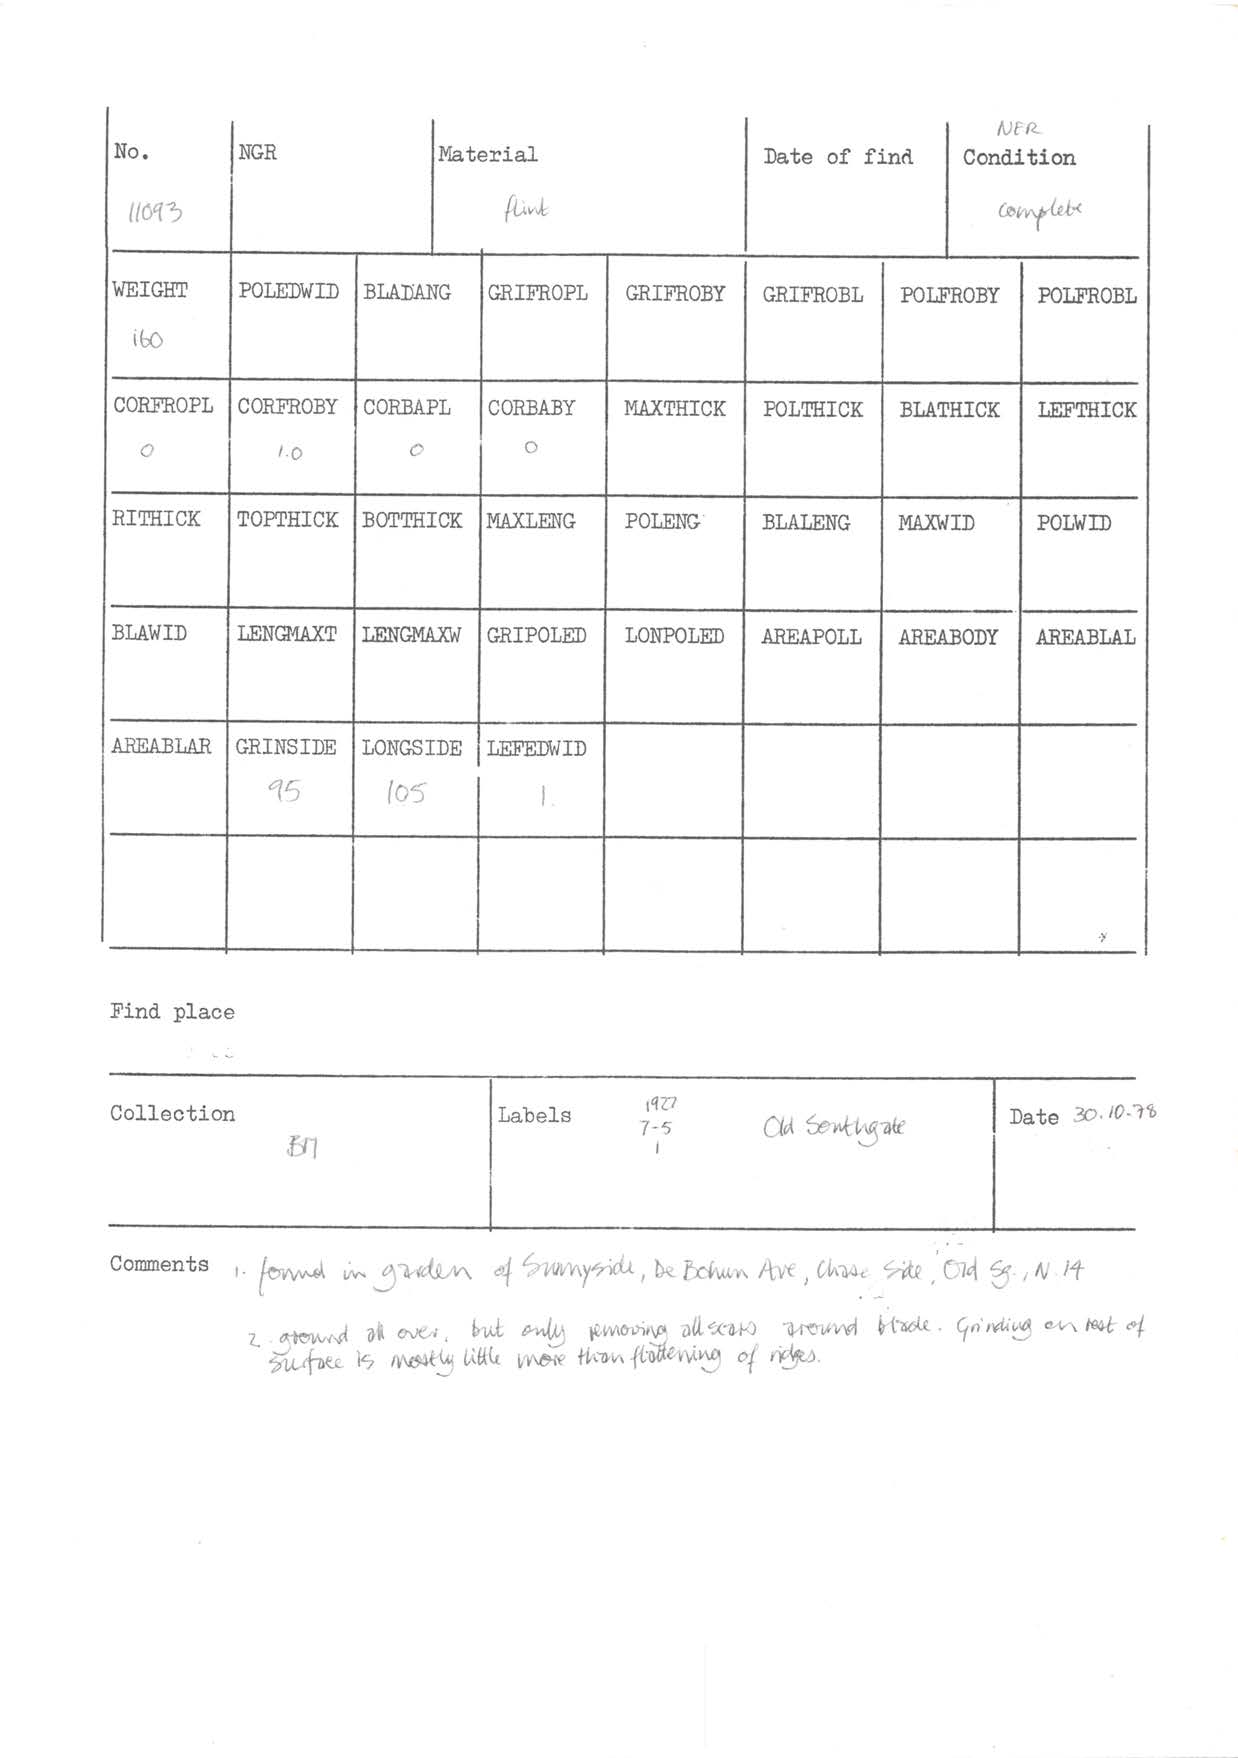 NER
No. NGR Material Date of find Condition
11093 flint complete
WEIGHT POLEDWID BLADANG GRIFROPL GRIFROBY GRIFROBL POLFROBY POLFROBL
160
CORFROPL CORFROBY CORBAPL CORBABY MAXTHICK POLTHICK BLATHICK LEFTHICK
0 1.0 0 0
RITHICK TOPTHICK BOTTHICK MAXLENG POLENG BLALENG MAXWID POLWID
BLAWID LENGMAXT LENGMAXW GRIPOLED LONPOLED AREAPOLL AREABODY AREABLAL
AREABLAR GRINSIDE LONGSIDE LEFEDWID
95 105 1.
Find place
Collection Labels 1927 Date 30.10.78
BM 7-5 Old Southgate
1
Comments 1. found in garden of Sunnyside, De Bohun Ave, Chase Side, Old Sg., N.14
2. ground all over, but only removing all scars around blade. Grinding on rest of
surface is mostly little more than flattening of ridges.